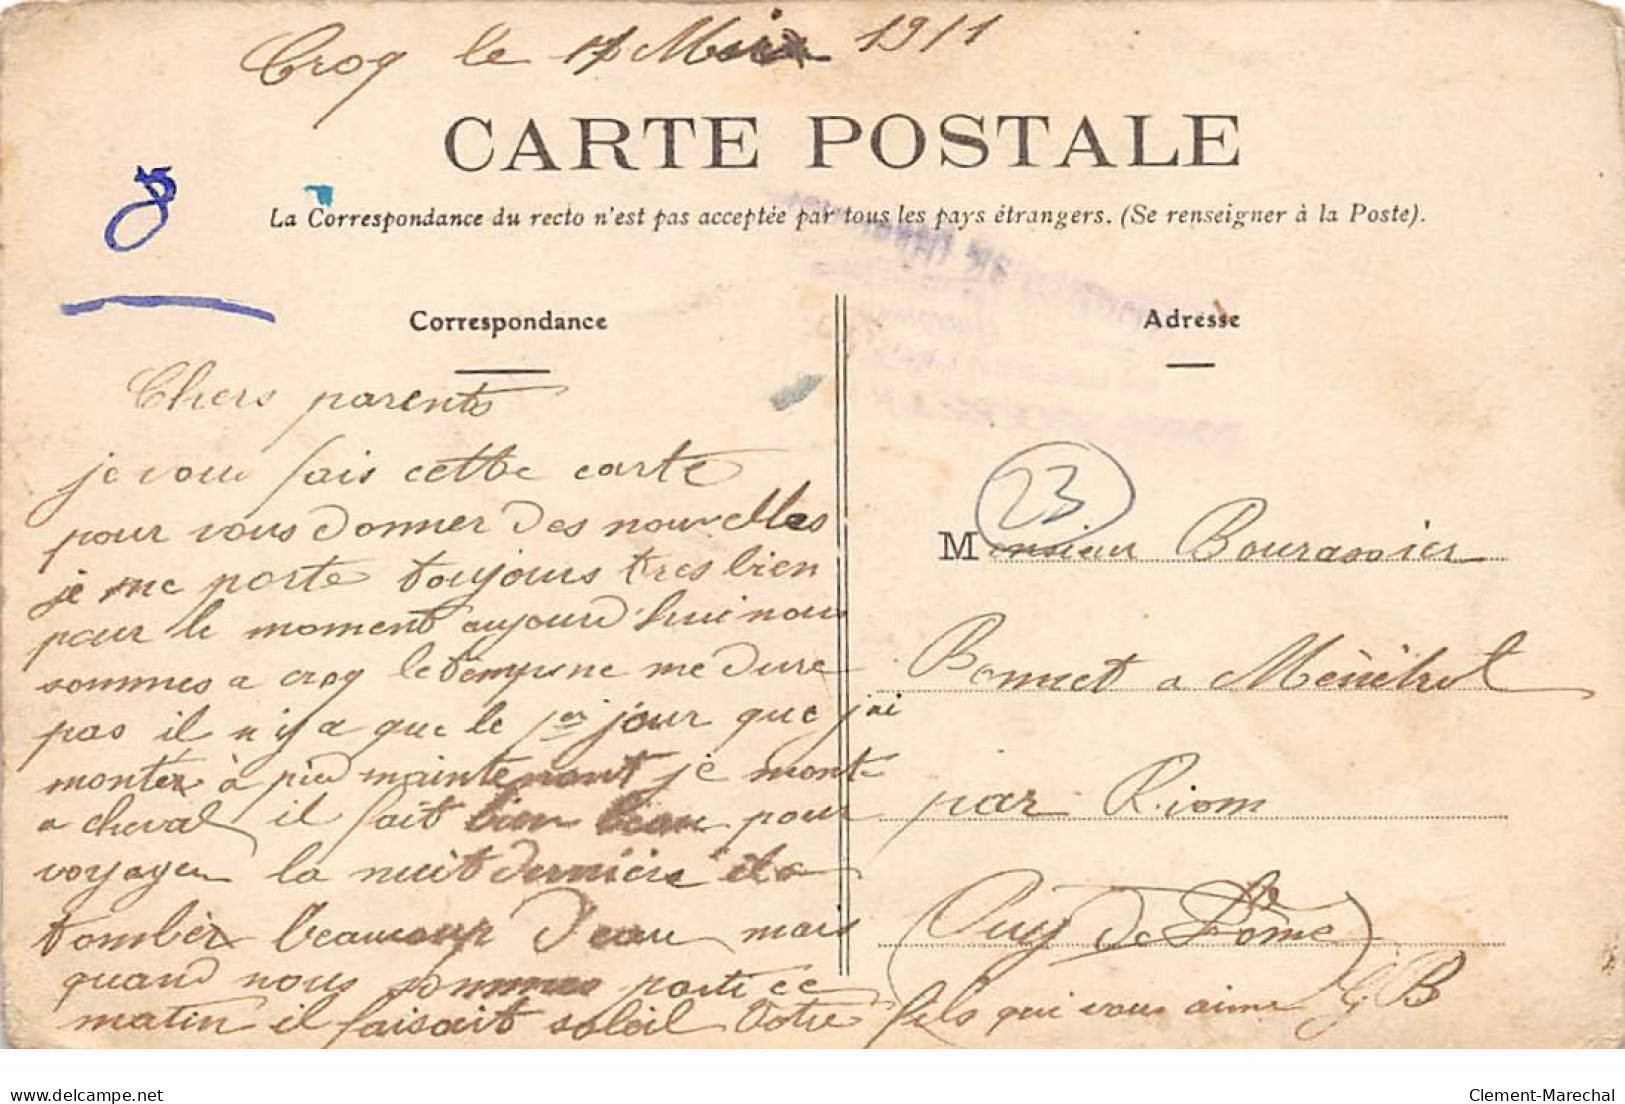 Crocq le 17 Mai 1911
CARTE POSTALE
La Correspondance du recto n'est pas acceptée par tous les pays étrangers. (Se renseigner à la Poste).
Correspondance
Chers parents
je vous fais cette carte
pour vous donner des nouvelles
je me porte toujours tres bien
pour le moment aujourd'hui nous
sommes a croq le temps ne me dure
pas il n'y a que le 1er jour que j'ai
montér à pied maintenant je monte
a cheval il fait bien beau pour
voyager la nuit derniére il a
tombér beaucoup d'eau mais
quand nous sommes parti ce
matin il faisait soleil Votre fils qui vous aime G B
Adresse
23
Monsieur Bourassier
Bonnet a Ménétrol
par Riom
Puy de Dôme
Clement-Marechal
delcampe.net